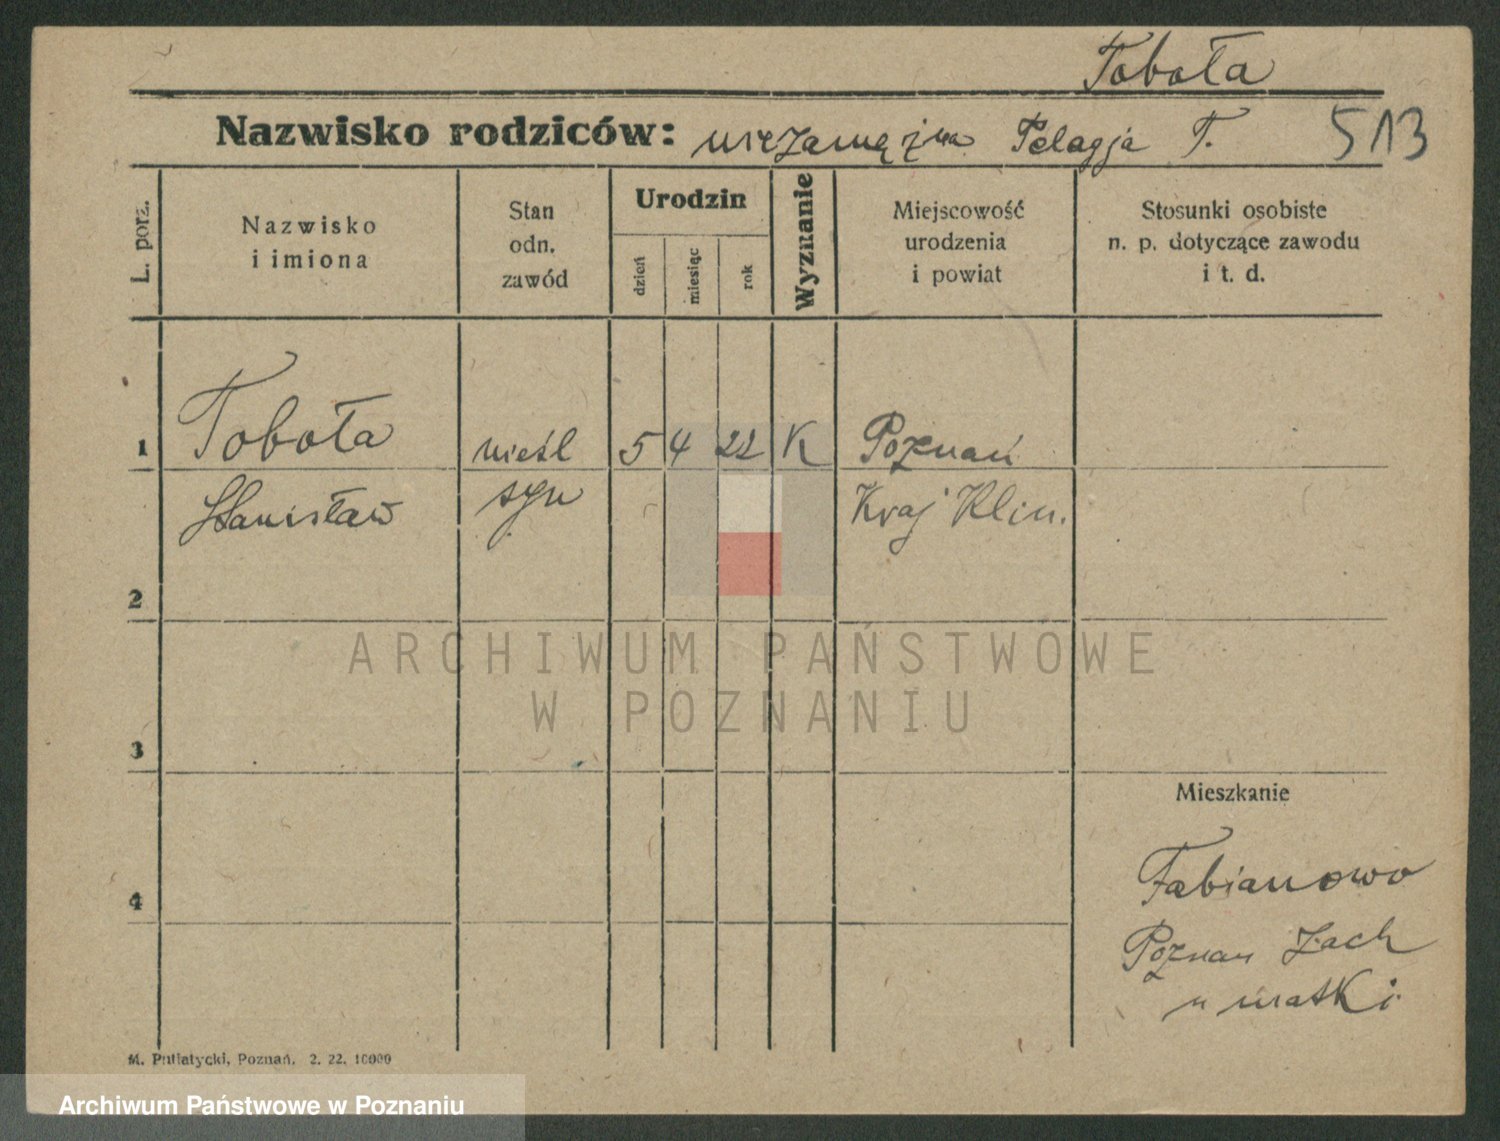 Toboła
Nazwisko rodziców: niezamężna Pelagja T. 513
L. porz.
Nazwisko
i imiona
Stan
odn.
zawód
Urodzin
dzień
miesiąc
rok
Wyznanie
Miejscowość
urodzenia
i powiat
Stosunki osobiste
n. p. dotyczące zawodu
i t. d.
1 Toboła nieśl 5 4 22 K Poznań
Stanisław syn Kraj Klin.
2
ARCHIWUM PAŃSTWOWE
W POZNANIU
3
Mieszkanie
4 Fabianowo
Poznan Zach
u matki
M. Putiatycki, Poznań. 2. 22. 10000
Archiwum Państwowe w Poznaniu